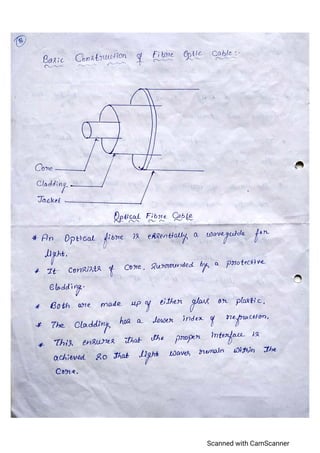 Basic Construction of Fibre Optic Cable :-
Core
Cladding
Jacket
Optical Fibre Cable
* An Optical fibre is essentially a waveguide for
light.
* It consists of core, surrounded by, a protective
cladding.
* Both are made up of either glass or plastic.
* The Cladding has a lower index of refraction.
* This ensures that the proper interface is
achieved so that light waves remain within the
Core.
Scanned with CamScanner